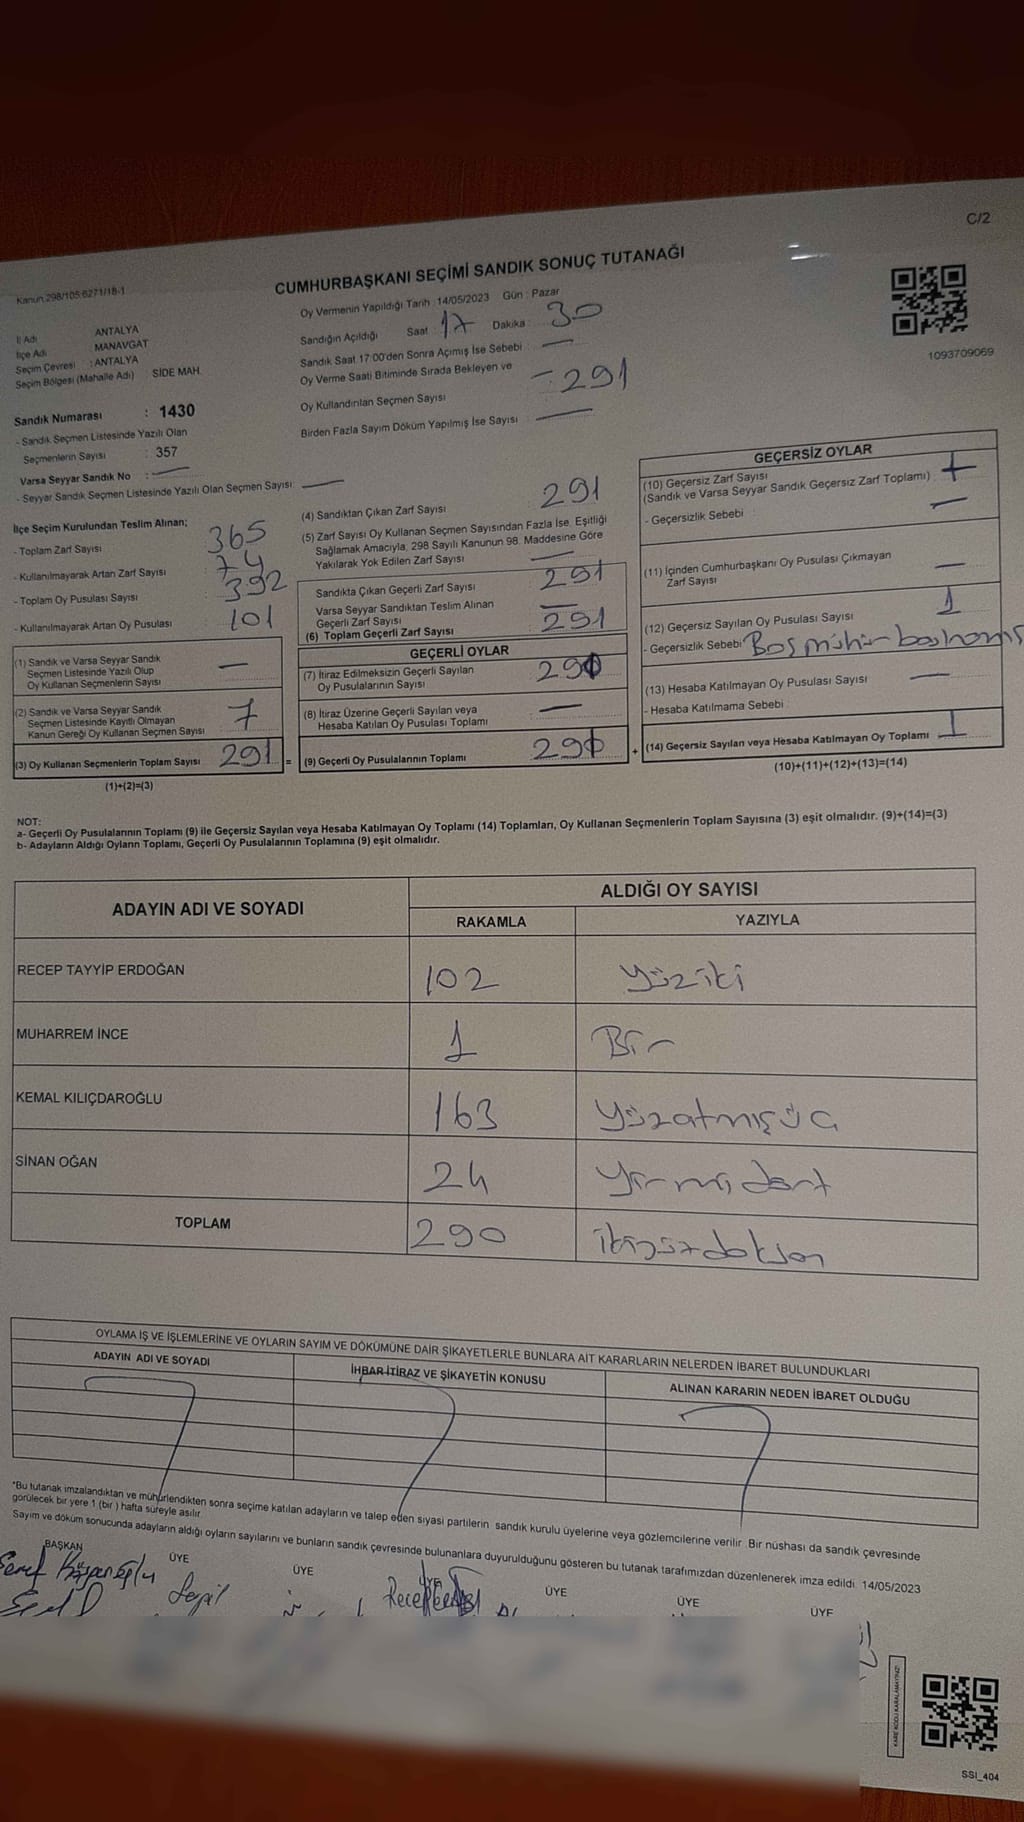 C/2
CUMHURBAŞKANI SEÇİMİ SANDIK SONUÇ TUTANAĞI
Kanun 298/105:6271/18-1
İl Adı ANTALYA
İlçe Adı MANAVGAT
Seçim Çevresi : ANTALYA
Seçim Bölgesi (Mahalle Adı) SİDE MAH.
Sandık Numarası : 1430
- Sandık Seçmen Listesinde Yazılı Olan
Seçmenlerin Sayısı : 357
Varsa Seyyar Sandık No : —
- Seyyar Sandık Seçmen Listesinde Yazılı Olan Seçmen Sayısı: —
Oy Vermenin Yapıldığı Tarih : 14/05/2023 Gün : Pazar
Sandığın Açıldığı Saat 17 Dakika : 30
Sandık Saat 17:00'den Sonra Açımış İse Sebebi : —
Oy Verme Saati Bitiminde Sırada Bekleyen ve
Oy Kullandırılan Seçmen Sayısı - 291
Birden Fazla Sayım Döküm Yapılmış İse Sayısı : —
1093709069
İlçe Seçim Kurulundan Teslim Alınan;
- Toplam Zarf Sayısı : 365
- Kullanılmayarak Artan Zarf Sayısı : 74
- Toplam Oy Pusulası Sayısı : 392
- Kullanılmayarak Artan Oy Pusulası : 101
(1) Sandık ve Varsa Seyyar Sandık
Seçmen Listesinde Yazılı Olup
Oy Kullanan Seçmenlerin Sayısı —
(2) Sandık ve Varsa Seyyar Sandık
Seçmen Listesinde Kayıtlı Olmayan
Kanun Gereği Oy Kullanan Seçmen Sayısı 7
(3) Oy Kullanan Seçmenlerin Toplam Sayısı 291 =
(1)+(2)=(3)
(4) Sandıktan Çıkan Zarf Sayısı 291
(5) Zarf Sayısı Oy Kullanan Seçmen Sayısından Fazla İse, Eşitliği
Sağlamak Amacıyla, 298 Sayılı Kanunun 98. Maddesine Göre
Yakılarak Yok Edilen Zarf Sayısı —
Sandıkta Çıkan Geçerli Zarf Sayısı 291
Varsa Seyyar Sandıktan Teslim Alınan
Geçerli Zarf Sayısı —
(6) Toplam Geçerli Zarf Sayısı 291
GEÇERLİ OYLAR
(7) İtiraz Edilmeksizin Geçerli Sayılan
Oy Pusulalarının Sayısı 290
(8) İtiraz Üzerine Geçerli Sayılan veya
Hesaba Katılan Oy Pusulası Toplamı —
(9) Geçerli Oy Pusulalarının Toplamı 290 +
GEÇERSİZ OYLAR
(10) Geçersiz Zarf Sayısı
(Sandık ve Varsa Seyyar Sandık Geçersiz Zarf Toplamı) :
- Geçersizlik Sebebi : —
(11) İçinden Cumhurbaşkanı Oy Pusulası Çıkmayan
Zarf Sayısı —
(12) Geçersiz Sayılan Oy Pusulası Sayısı 1
- Geçersizlik Sebebi Boş mühür basılmamış
(13) Hesaba Katılmayan Oy Pusulası Sayısı —
- Hesaba Katılmama Sebebi
(14) Geçersiz Sayılan veya Hesaba Katılmayan Oy Toplamı 1
(10)+(11)+(12)+(13)=(14)
NOT:
a- Geçerli Oy Pusulalarının Toplamı (9) ile Geçersiz Sayılan veya Hesaba Katılmayan Oy Toplamı (14) Toplamları, Oy Kullanan Seçmenlerin Toplam Sayısına (3) eşit olmalıdır. (9)+(14)=(3)
b- Adayların Aldığı Oyların Toplamı, Geçerli Oy Pusulalarının Toplamına (9) eşit olmalıdır.
ADAYIN ADI VE SOYADI ALDIĞI OY SAYISI
RAKAMLA YAZIYLA
RECEP TAYYİP ERDOĞAN 102 yüziki
MUHARREM İNCE 1 Bir
KEMAL KILIÇDAROĞLU 163 yüzatmışüç
SİNAN OĞAN 24 yirmidört
TOPLAM 290 ikiyüzdoksan
OYLAMA İŞ VE İŞLEMLERİNE VE OYLARIN SAYIM VE DÖKÜMÜNE DAİR ŞİKAYETLERLE BUNLARA AİT KARARLARIN NELERDEN İBARET BULUNDUKLARI
ADAYIN ADI VE SOYADI İHBAR İTİRAZ VE ŞİKAYETİN KONUSU ALINAN KARARIN NEDEN İBARET OLDUĞU
*Bu tutanak imzalandıktan ve mühürlendikten sonra seçime katılan adayların ve talep eden siyasi partilerin sandık kurulu üyelerine veya gözlemcilerine verilir. Bir nüshası da sandık çevresinde
görülecek bir yere 1 (bir ) hafta süreyle asılır.
Sayım ve döküm sonucunda adayların aldığı oyların sayılarını ve bunların sandık çevresinde bulunanlara duyurulduğunu gösteren bu tutanak tarafımızdan düzenlenerek imza edildi. 14/05/2023
BAŞKAN ÜYE ÜYE ÜYE ÜYE ÜYE ÜYE
KARE KODU KARALAMAYINIZ!
SSI_404